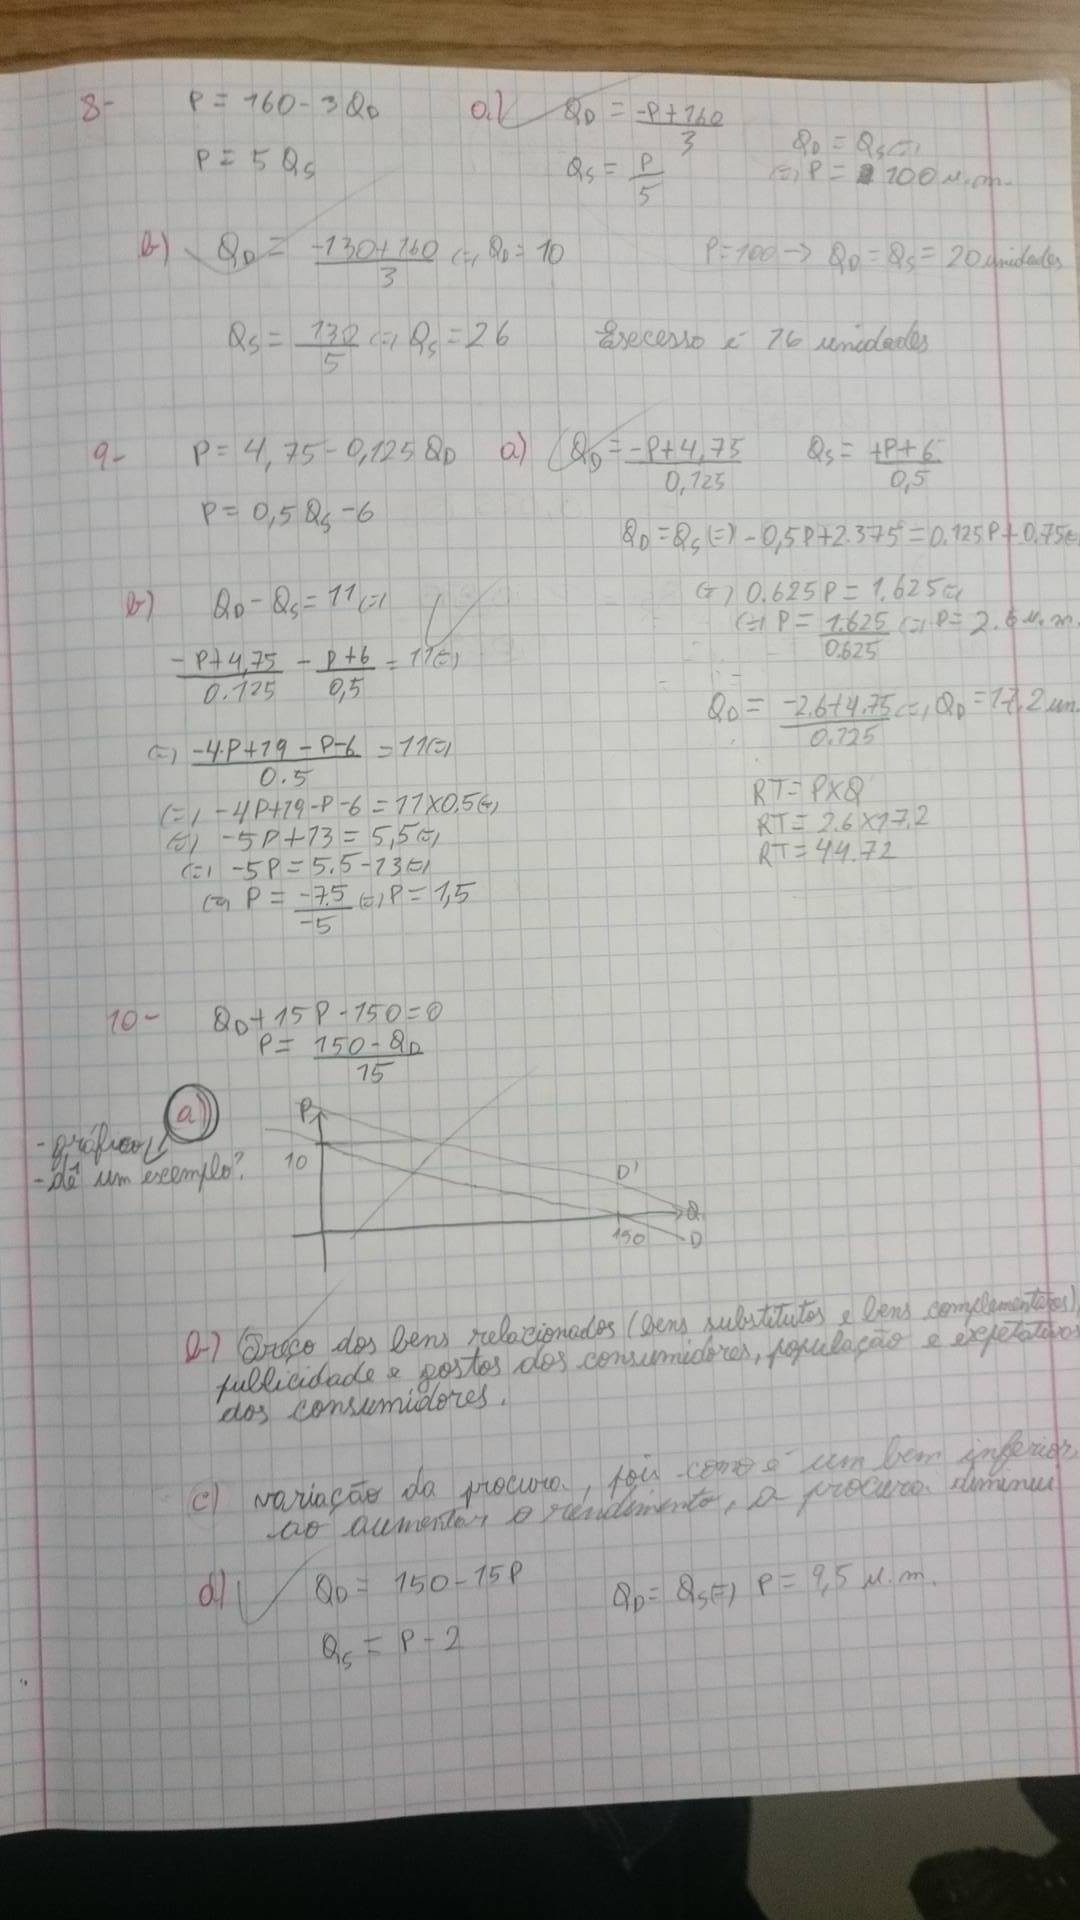 8- P = 160 - 3QD a.) QD = (-P+160)/3
P = 5 QS QS = P/5 QD = QS (=)
(=) P = 100 u.m.
b) QD = (-130+160)/3 (=) QD = 10 P=100 → QD = QS = 20 unidades
QS = 130/5 (=) QS = 26 Excesso é 16 unidades
9- P = 4,75 - 0,125QD a) QD = (-P+4,75)/0,125 QS = (+P+6)/0,5
P = 0,5QS - 6
QD = QS (=) -0,5P+2.375 = 0.125P+0.75 (=)
(=) 0.625P = 1.625 (=)
(=) P = 1.625/0.625 (=) P = 2.6 u.m.
QD = (-2.6+4.75)/0.125 (=) QD = 17.2 un.
RT = P×Q
RT = 2.6×17.2
RT = 44.72
b) QD - QS = 11 (=)
(-P+4,75)/0.125 - (P+6)/0,5 = 11 (=)
(=) (-4P+19-P-6)/0.5 = 11 (=)
(=) -4P+19-P-6 = 11×0.5 (=)
(=) -5P+13 = 5,5 (=)
(=) -5P = 5.5-13 (=)
(=) P = -7.5/-5 (=) P = 1,5
10- QD+15P-150=0
P = (150-QD)/15
a)
- gráfico
- dê um exemplo?
P
10
D'
Q
150
D
b) Preço dos bens relacionados (bens substitutos e bens complementares),
publicidade e gostos dos consumidores, população e expetativas
dos consumidores.
c) variação da procura, pois como é um bem inferior,
ao aumentar o rendimento, a procura diminui
d) QD = 150-15P QD = QS (=) P = 9,5 u.m.
QS = P-2